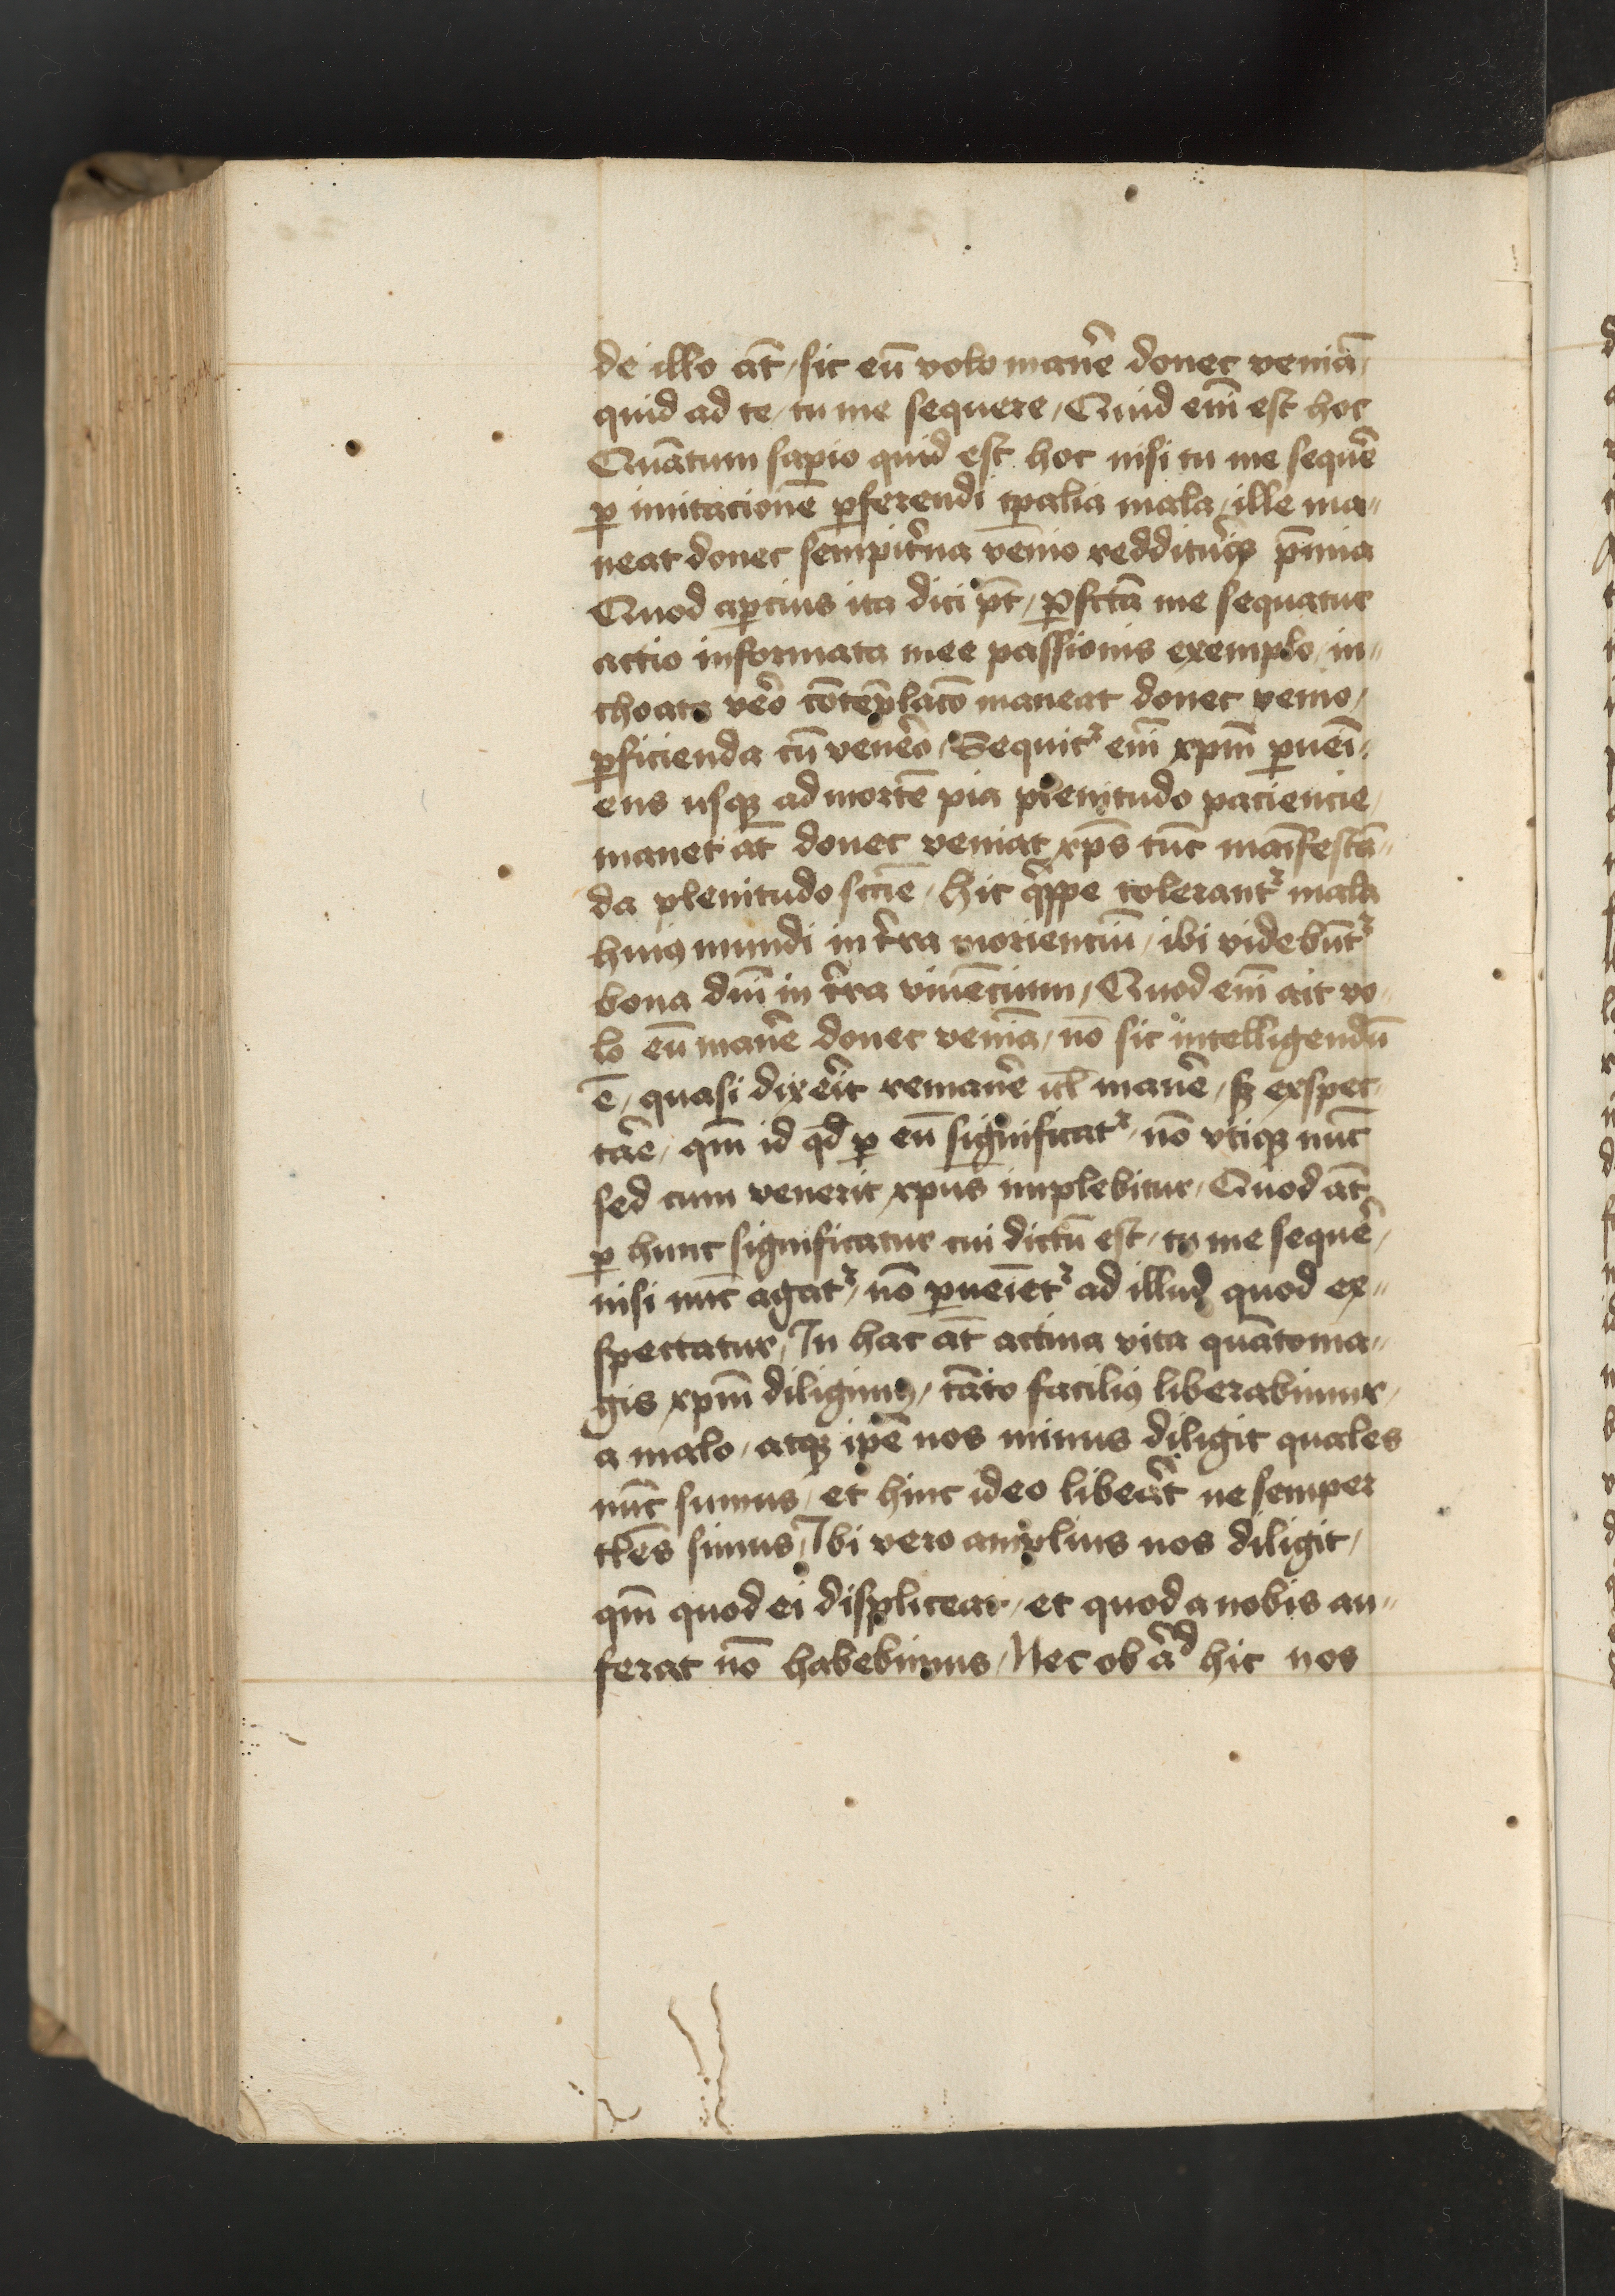 de illo at̄ / sic eū volo man̄e donec veniā /
quid ad te / tu me sequere / Quid em̄ est hoc
Quātum sapio quid est hoc nisi tu me sequē
ꝑ imitacionē ꝑferendi tp̄alia mala / ille ma〃
neat donec sempit̄na venio reddit̄us p̄mia
Quod aꝑcius ita dici pt̄ / ꝑfctā me sequatur
actio informata mee passionis exemplo / in〃
choata vēo cōtēplacō maneat donec venio /
ꝑficienda cū venēo / Sequitᷣ em̄ xpm̄ ꝑueni〃
ens usqꝫ ad mortē pia plenitudo paciencie /
manet at̄ donec veniat xp̄s tūc māifestā〃
da plenitudo sciē / hic q̄ppe tolerantᷣ mala
huiꝰ mundi in t̄ra morienciū / ibi videbūtᷣ
bona dm̄ in t̄ra viuēcium / Quod em̄ ait vo〃
lo eū man̄e donec veniā / nō sic intelligendū
ē / quasi dixēit reman̄e ul̄ man̄e / sꝫ exspec〃
tāe / qm̄ id qd̄ ꝑ eū significatᷣ / nō vtiqꝫ nūc
sed cum venerit xpūs implebitur / Quod at̄
ꝑ hunc significatur cui dictū est / tu me sequē /
nisi nūc agatᷣ / nō ꝑueīetᷣ ad illud quod ex〃
spectatur / In hac at̄ actiua vita quāto ma〃
gis xpm̄ diligimꝰ / tāto faciliꝰ liberabimur /
a malo / atqꝫ ip̄e nos minus diligit quales
nūc sumus / et hinc ideo libēat ne semper
tl̄es simus / Ibi vero amplius nos diligit /
qm̄ quod ei displiceat / et quod a nobis au〃
ferat nō habebimus / Nec ob aᷘd hic nos